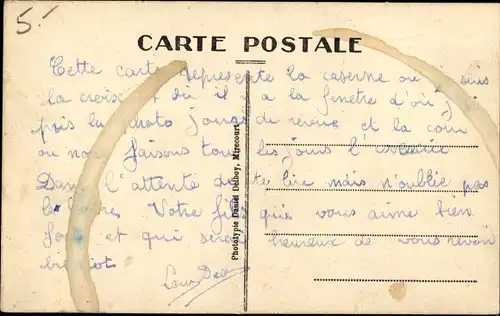 5.-
CARTE POSTALE
Cette carte représente la caserne ou suis
la croisée il a la fenetre d'ou j
pris la photo jour du revue et la cour
ou nous faisons tous les jours l'exercice
Dans l'attente de te lire mais n'oublie pas
le Votre fils que vous aime bien
et qui serai heureux de vous revoir
bientot
Louis
Phototype Daniel Delboy, Mirecourt